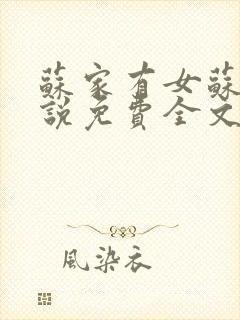 蘇家有女蘇
說免費全文
風染衣